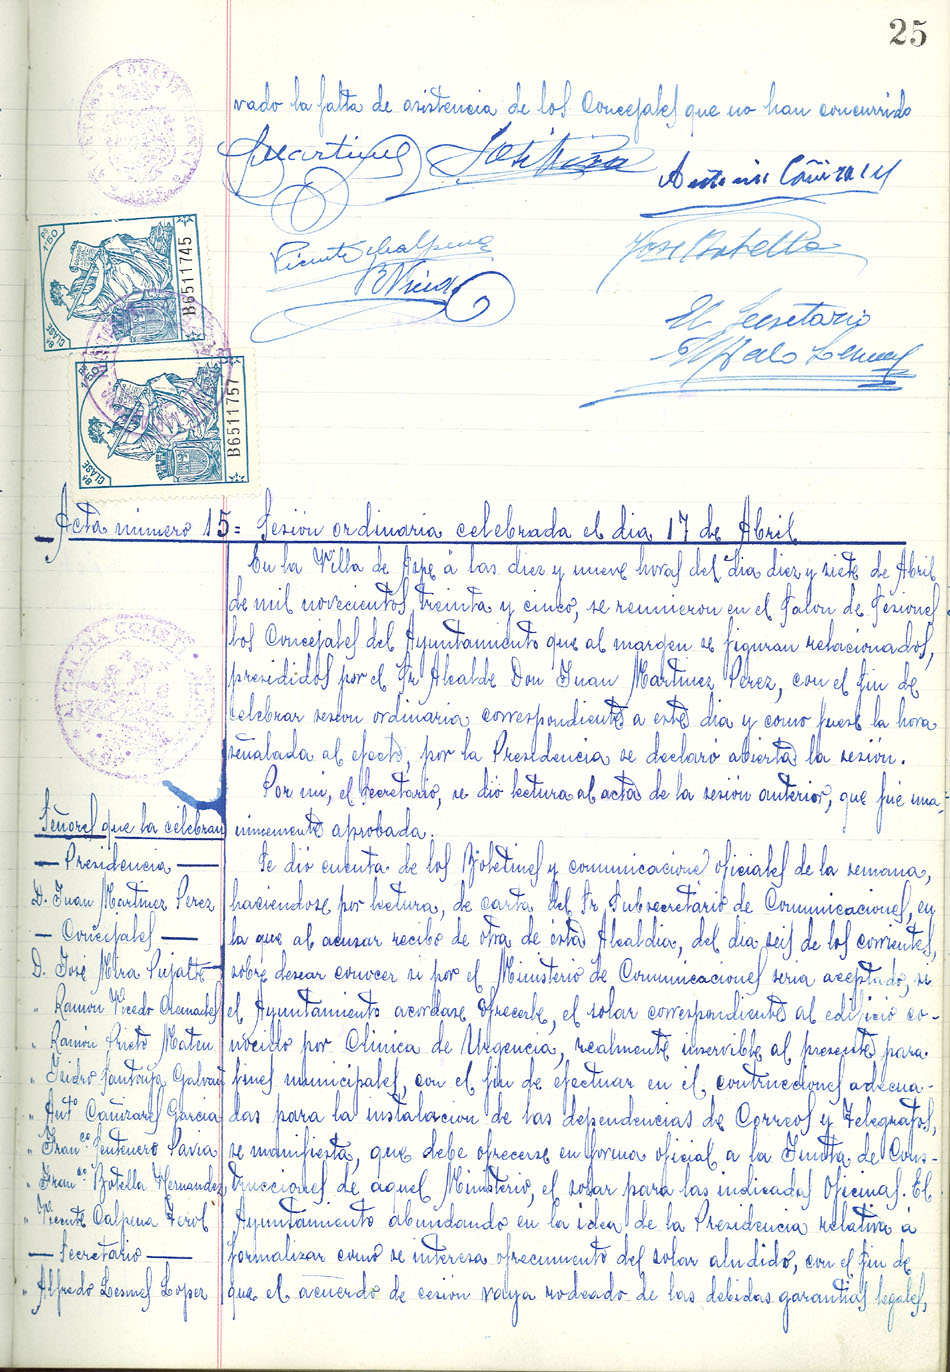 25
vado la falta de asistencia de los Concejales que no han concurrido
JMartinez
José Mira
Antonio Cañizares
Vicente Calpena
José Botella
R Vicedo
El Secretario
Alfredo Lesmes
Pts 1'50
B6511745
8ª CLASE
Pts 1'50
B6511757
8ª CLASE
Acta número 15= Sesión ordinaria celebrada el dia 17 de Abril
En la Villa de Aspe á las diez y nueve horas del dia diez y siete de Abril
de mil novecientos treinta y cinco, se reunieron en el Salon de Sesiones
los Concejales del Ayuntamiento que al margen se figuran relacionados,
presididos por el Sr Alcalde Don Juan Martinez Perez, con el fin de
celebrar sesion ordinaria correspondiente a este dia y como fuese la hora
señalada al efecto, por la Presidencia se declaró abierta la sesión.
Por mi, el Secretario, se dió lectura al acta de la sesión anterior, que fué una-
nimemente aprobada.
Se dió cuenta de los Boletines y comunicaciones oficiales de la semana,
haciendose por lectura, de carta del Sr. Subsecretario de Comunicaciones, en
la que al acusar recibo de otra de esta Alcaldia, del dia seis de los corrientes,
sobre desear conocer si por el Ministerio de Comunicaciones seria aceptado, si
el Ayuntamiento acordase ofrecerle, el solar correspondiente al edificio co-
nocido por Clinica de Urgencia, realmente inservible al presente para
fines municipales, con el fin de efectuar en él contrucciones adecua-
das para la instalacion de las dependencias de Correos y Telegrafos,
se manifiesta, que debe ofrecerse en forma oficial a la Junta de Cons-
trucciones de aquel Ministerio, el solar para las indicadas Oficinas. El
Ayuntamiento abundando en la idea de la Presidencia relativa á
formalizar como se interesa ofrecimiento del solar aludido, con el fin de
que el acuerdo de cesión vaya rodeado de las debidas garantias legales,
Señores que la celebran
— Presidencia —
D. Juan Martinez Perez
— Concejales —
D. José Mira Pujalte
" Ramón Vicedo Cremades
" Ramón Prieto Mateu
" Isidro Santonja Galvañ
" Antº Cañizares Garcia
" Franco Centenero Pavia
" Franco Botella Hernandez
" Vicente Calpena Ferol
— Secretario —
" Alfredo Lesmes Lopez